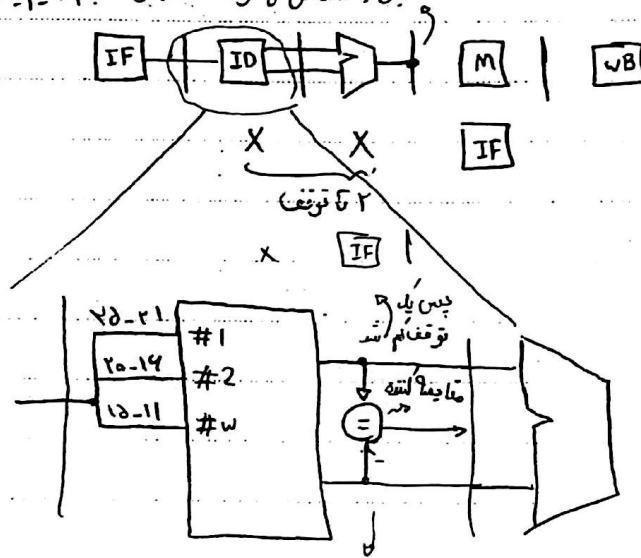 IF ID M WB
X X IF
۲ تا توقف
x IF
پس یک
توقف کم شد
۲۵-۲۱ #1
۲۰-۱۶ #2
مقایسه کننده
۱۵-۱۱ #w
=